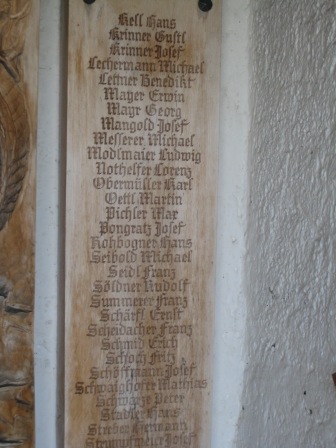 Kell Hans
Krinner Gustl
Krinner Josef
Lechermann Michael
Lettner Benedikt
Mayer Erwin
Mayr Georg
Mangold Josef
Messerer Michael
Modlmaier Ludwig
Nothelfer Lorenz
Obermüller Karl
Oettl Martin
Pichler Max
Pongratz Josef
Rohbogner Hans
Seibold Michael
Seidl Franz
Söldner Rudolf
Summerer Franz
Schärfl Ernst
Scheidacher Franz
Schmid Erich
Schoch Fritz
Schöffmann Josef
Schwaighofer Mathias
Schwarze Peter
Stadler Hans
Hermann
Josef